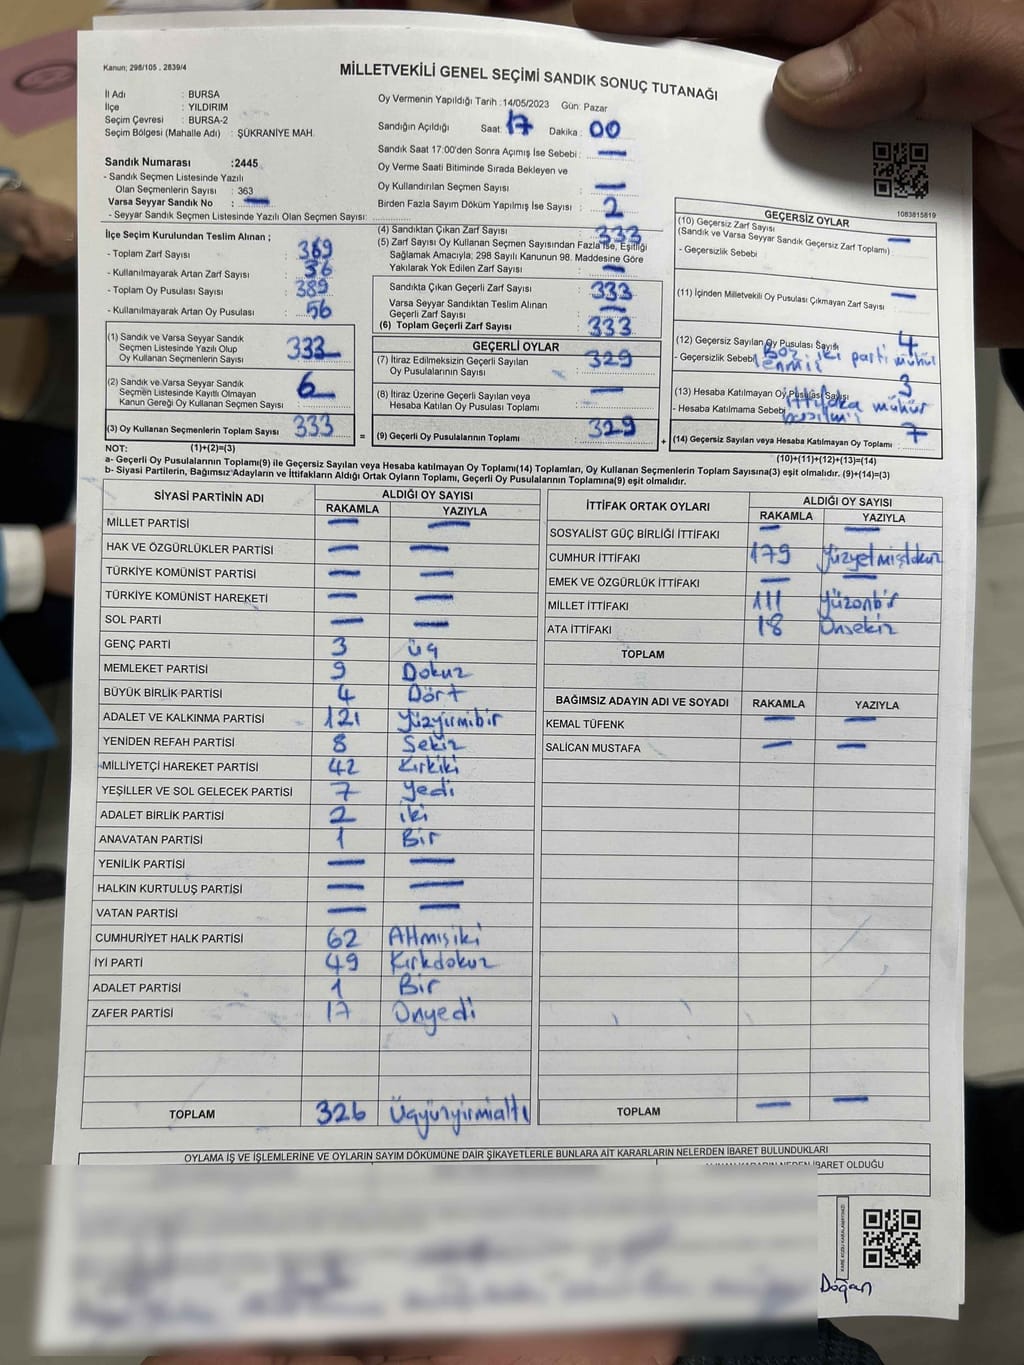 Kanun; 298/105 . 2839/4
MİLLETVEKİLİ GENEL SEÇİMİ SANDIK SONUÇ TUTANAĞI
İl Adı : BURSA
İlçe : YILDIRIM
Seçim Çevresi : BURSA-2
Seçim Bölgesi (Mahalle Adı) : ŞÜKRANİYE MAH.
Sandık Numarası :2445
- Sandık Seçmen Listesinde Yazılı
Olan Seçmenlerin Sayısı : 363
Varsa Seyyar Sandık No : —
- Seyyar Sandık Seçmen Listesinde Yazılı Olan Seçmen Sayısı:
Oy Vermenin Yapıldığı Tarih :14/05/2023 Gün: Pazar
Sandığın Açıldığı Saat: 17 Dakika : 00
Sandık Saat 17:00'den Sonra Açımış İse Sebebi : —
Oy Verme Saati Bitiminde Sırada Bekleyen ve
Oy Kullandırılan Seçmen Sayısı : —
Birden Fazla Sayım Döküm Yapılmış İse Sayısı : 2
1083815819
İlçe Seçim Kurulundan Teslim Alınan ;
- Toplam Zarf Sayısı : 369
- Kullanılmayarak Artan Zarf Sayısı : 36
- Toplam Oy Pusulası Sayısı : 389
- Kullanılmayarak Artan Oy Pusulası : 56
(1) Sandık ve Varsa Seyyar Sandık
Seçmen Listesinde Yazılı Olup
Oy Kullanan Seçmenlerin Sayısı : 333
(2) Sandık ve Varsa Seyyar Sandık
Seçmen Listesinde Kayıtlı Olmayan
Kanun Gereği Oy Kullanan Seçmen Sayısı : 6
(3) Oy Kullanan Seçmenlerin Toplam Sayısı : 333
(1)+(2)=(3)
(4) Sandıktan Çıkan Zarf Sayısı : 333
(5) Zarf Sayısı Oy Kullanan Seçmen Sayısından Fazla İse, Eşitliği
Sağlamak Amacıyla; 298 Sayılı Kanunun 98. Maddesine Göre
Yakılarak Yok Edilen Zarf Sayısı : —
Sandıkta Çıkan Geçerli Zarf Sayısı : 333
Varsa Seyyar Sandıktan Teslim Alınan
Geçerli Zarf Sayısı : —
(6) Toplam Geçerli Zarf Sayısı : 333
GEÇERLİ OYLAR
(7) İtiraz Edilmeksizin Geçerli Sayılan
Oy Pusulalarının Sayısı : 329
(8) İtiraz Üzerine Geçerli Sayılan veya
Hesaba Katılan Oy Pusulası Toplamı : —
= (9) Geçerli Oy Pusulalarının Toplamı : 329 +
GEÇERSİZ OYLAR
(10) Geçersiz Zarf Sayısı : —
(Sandık ve Varsa Seyyar Sandık Geçersiz Zarf Toplamı)
- Geçersizlik Sebebi
(11) İçinden Milletvekili Oy Pusulası Çıkmayan Zarf Sayısı : —
(12) Geçersiz Sayılan Oy Pusulası Sayısı : 4
- Geçersizlik Sebebi iki parti mühür
(13) Hesaba Katılmayan Oy Pusulası Sayısı 3
- Hesaba Katılmama Sebebi ittifaka mühür
(14) Geçersiz Sayılan veya Hesaba Katılmayan Oy Toplamı : 7
(10)+(11)+(12)+(13)=(14)
NOT:
a- Geçerli Oy Pusulalarının Toplamı(9) ile Geçersiz Sayılan veya Hesaba katılmayan Oy Toplamı(14) Toplamları, Oy Kullanan Seçmenlerin Toplam Sayısına(3) eşit olmalıdır. (9)+(14)=(3)
b- Siyasi Partilerin, Bağımsız Adayların ve İttifakların Aldığı Ortak Oyların Toplamı, Geçerli Oy Pusulalarının Toplamına(9) eşit olmalıdır.
SİYASİ PARTİNİN ADI ALDIĞI OY SAYISI
RAKAMLA YAZIYLA
MİLLET PARTİSİ — —
HAK VE ÖZGÜRLÜKLER PARTİSİ — —
TÜRKİYE KOMÜNİST PARTİSİ — —
TÜRKİYE KOMÜNİST HAREKETİ — —
SOL PARTİ — —
GENÇ PARTİ 3 üç
MEMLEKET PARTİSİ 9 Dokuz
BÜYÜK BİRLİK PARTİSİ 4 Dört
ADALET VE KALKINMA PARTİSİ 121 Yüzyirmibir
YENİDEN REFAH PARTİSİ 8 Sekiz
MİLLİYETÇİ HAREKET PARTİSİ 42 Kırkiki
YEŞİLLER VE SOL GELECEK PARTİSİ 7 Yedi
ADALET BİRLİK PARTİSİ 2 iki
ANAVATAN PARTİSİ 1 Bir
YENİLİK PARTİSİ — —
HALKIN KURTULUŞ PARTİSİ — —
VATAN PARTİSİ — —
CUMHURİYET HALK PARTİSİ 62 Altmışiki
İYİ PARTİ 49 Kırkdokuz
ADALET PARTİSİ 1 Bir
ZAFER PARTİSİ 17 Onyedi
TOPLAM 326 Üçyüzyirmialtı
İTTİFAK ORTAK OYLARI ALDIĞI OY SAYISI
RAKAMLA YAZIYLA
SOSYALİST GÜÇ BİRLİĞİ İTTİFAKI — —
CUMHUR İTTİFAKI 179 Yüzyetmişdokuz
EMEK VE ÖZGÜRLÜK İTTİFAKI — —
MİLLET İTTİFAKI 111 Yüzonbir
ATA İTTİFAKI 18 Onsekiz
TOPLAM
BAĞIMSIZ ADAYIN ADI VE SOYADI RAKAMLA YAZIYLA
KEMAL TÜFENK — —
SALİCAN MUSTAFA — —
TOPLAM — —
OYLAMA İŞ VE İŞLEMLERİNE VE OYLARIN SAYIM DÖKÜMÜNE DAİR ŞİKAYETLERLE BUNLARA AİT KARARLARIN NELERDEN İBARET BULUNDUKLARI
İBARET OLDUĞU
Doğan